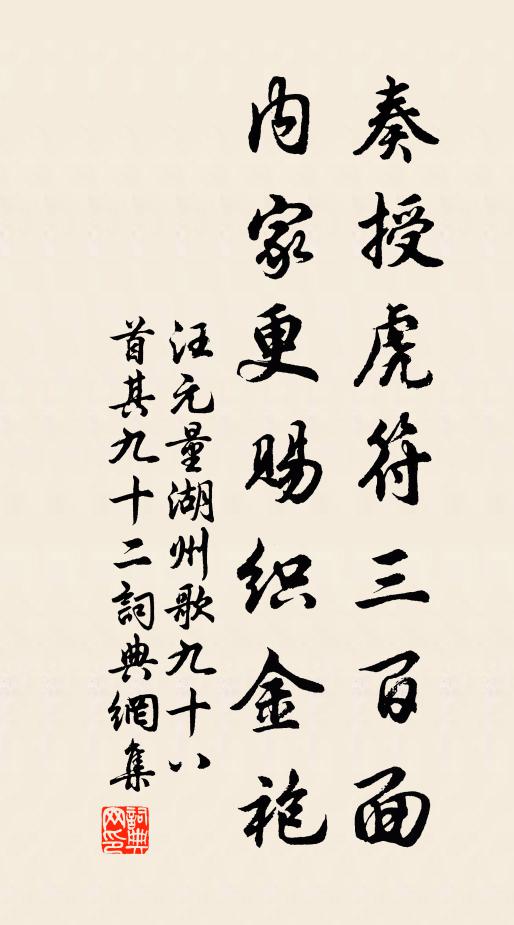 奏授虎符三百面
内家更赐织金袍
汪元量湖州歌九十八
首其九十二詞典網集
詞典
网印